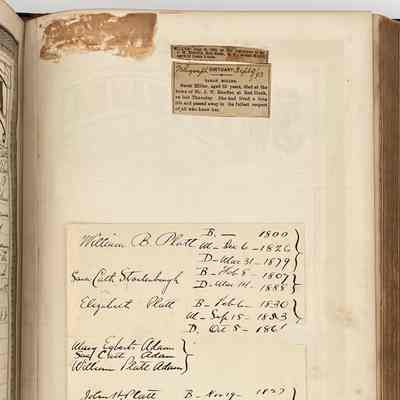 Telegraph OBITUARY. Sept 9/93
SARAH MILLER.
Sarah Miller, aged 82 years, died at the
home of Mr. J. W. Knuffer, at Red Hook,
on last Thursday. She had lived a long
life and passed away in the fullest respect
of all who knew her.
William B. Platt B. — 1800
M - Dec 6 - 1826
D - Mar 31 - 1879
Sara Cath Stoutenburgh B - Feb 8 - 1807
D - Mar 14 - 1888
Elizabeth Platt B - Feb 6 - 1830
M - Sep 15 - 1853
D. Oct 8 - 1861
Mary Egberts Adam
Sara Cath Adam
William Platt Adam
John H Platt B - Nov 19 - 1827